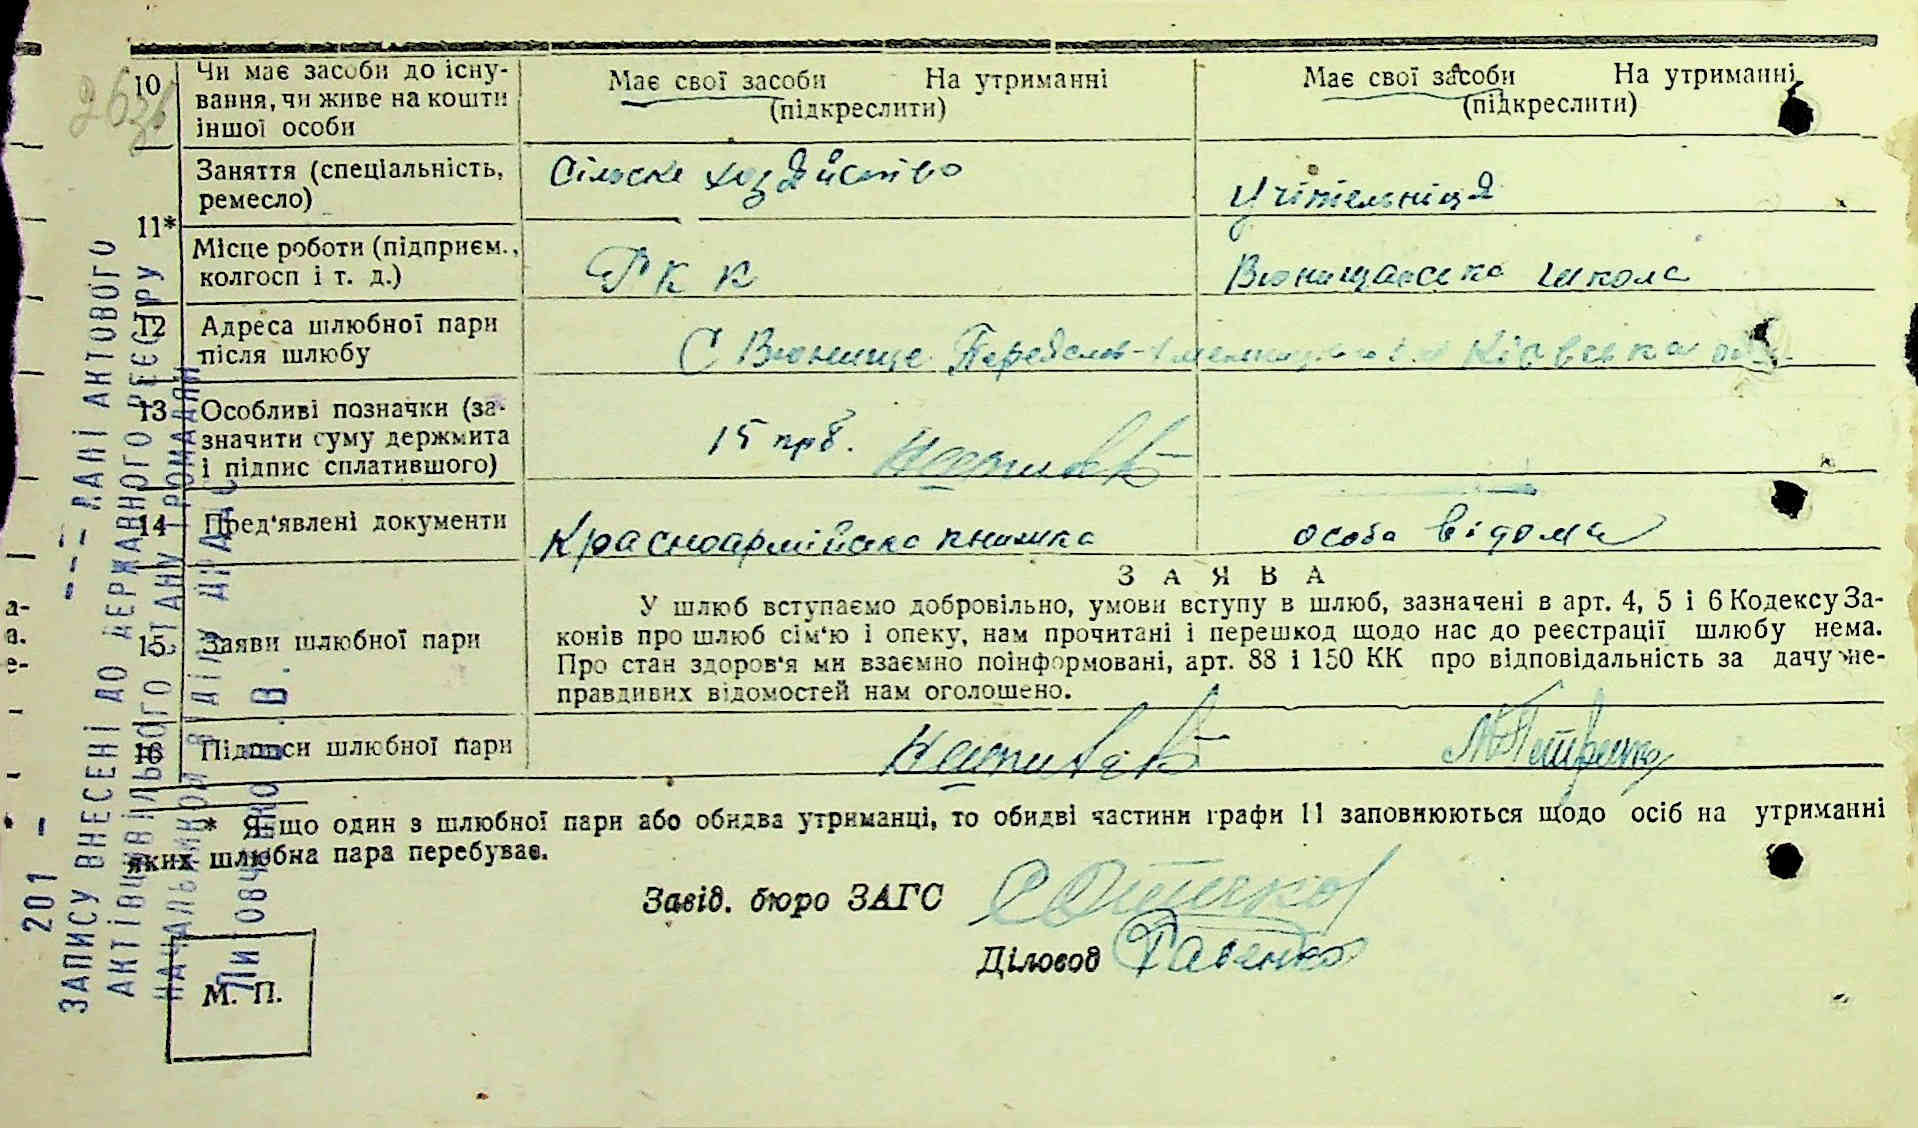 10 Чи має засоби до існу-
вання, чи живе на кошти
іншої особи
Має свої засоби На утриманні
(підкреслити)
Має свої засоби На утриманні
(підкреслити)
11*
Заняття (спеціальність,
ремесло)
Сільске хозяйство
Учітельніця
Місце роботи (підприєм.,
колгосп і т. д.)
Р К К
Вюнищанська школа
12 Адреса шлюбної пари
після шлюбу
С Вюнище Переяслов- Київська
13 Особливі позначки (за-
значити суму держмита
і підпис сплатившого)
15
14 Пред'явлені документи
Красноармійска книжка
особа відома
15 Заяви шлюбної пари
ЗАЯВА
У шлюб вступаємо добровільно, умови вступу в шлюб, зазначені в арт. 4, 5 і 6 Кодексу За-
конів про шлюб сім'ю і опеку, нам прочитані і перешкод щодо нас до реєстрації шлюбу нема.
Про стан здоров'я ми взаємно поінформовані, арт. 88 і 150 КК про відповідальність за дачу не-
правдивих відомостей нам оголошено.
16 Підписи шлюбної пари
МПетренко
* Якщо один з шлюбної пари або обидва утриманці, то обидві частини графи 11 заповнюються щодо осіб на утриманні
яких шлюбна пара перебуває.
Завід. бюро ЗАГС
Діловод
М. П.
201
ДАНІ АКТОВОГО
ЗАПИСУ ВНЕСЕНІ ДО ДЕРЖАВНОГО РЕЄСТРУ
АКТІВ ЦИВІЛЬНОГО СТАНУ ГРОМАДЯН
НАЧАЛЬНИКОМ ВІДДІЛУ ДРАЦС
Литовченко .В.
а-
а.
е-